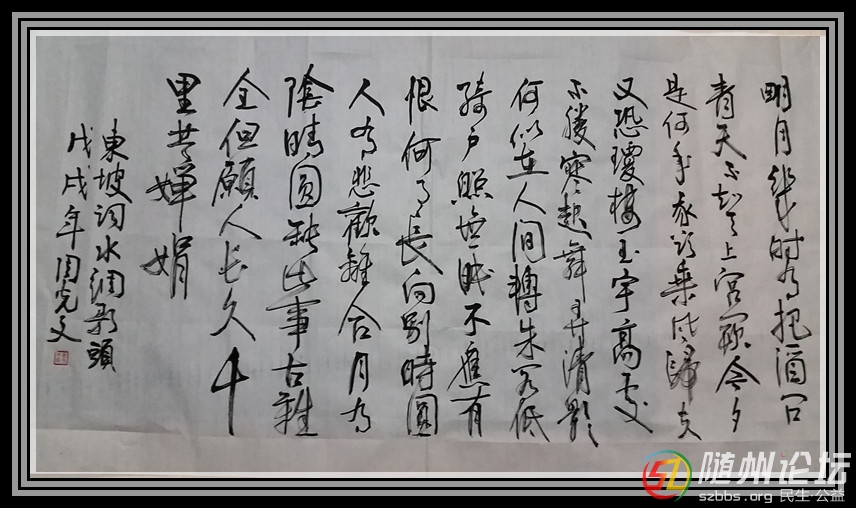 明月幾時有把酒問
青天不知天上宫闕今夕
是何年我欲乘风歸去
又恐瓊樓玉宇高處
不勝寒起舞弄清影
何似在人间轉朱閣低
綺户照無眠不應有
恨何事長向别時圓
人有悲歡離合月有
陰晴圓缺此事古難
全但願人长久千
里共嬋娟
東坡詞水調歌頭
戊戌年周光文
随州论坛
szbbs.org 民生·公益